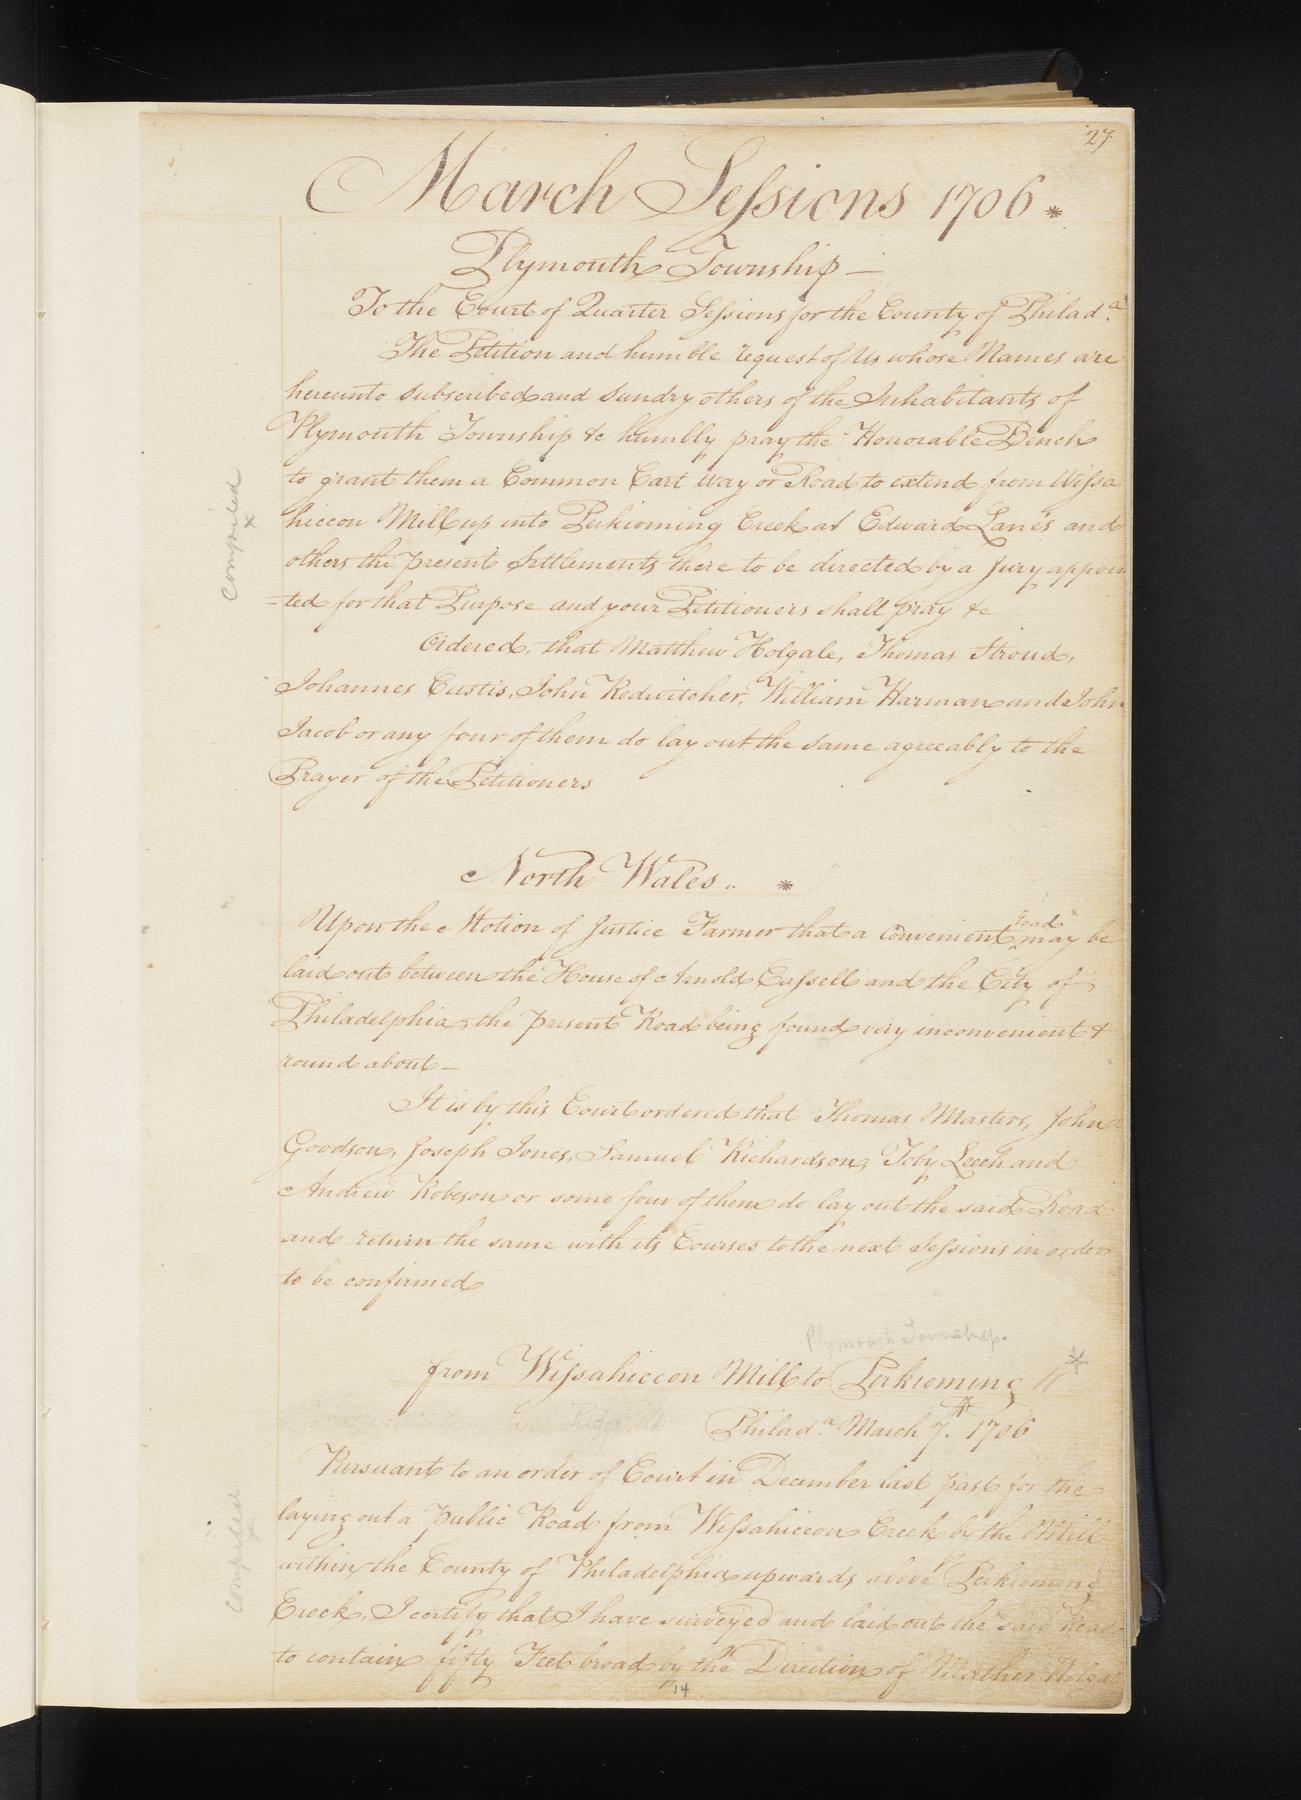 27.
March Sessions 1706 *
Plymouth Township —
To the Court of Quarter Sessions for the County of Philad.a
The Petition and humble request of Us whose Names are
hereunto subscribed and sundry others of the Inhabitants of
Plymouth Township &c humbly pray the Honorable Bench
to grant them a Common Cart Way or Road to extend from Wissa
hiccon Mill up into Perkioming Creek at Edward Lane's and
others the present Settlements there to be directed by a Jury appoin
-ted for that Purpose and your Petitioners shall pray &c
Compiled
x
Ordered, that Matthew Holgale, Thomas Stroud,
Johannes Eustis, John Redwitcher, William Harman and John
Jacob or any four of them do lay out the same agreeably to the
Prayer of the Petitioners
North Wales. *
Upon the Motion of Justice Farmer that a Convenient ^road may be
laid out between the House of Arnold Cassell and the City of
Philadelphia, the present Road being found very inconvenient &
round about —
It is by this Court ordered that Thomas Masters, John
Goodson, Joseph Jones, Samuel Richardson, Toby Leech and
Andrew Robeson or some four of them do lay out the said Road
and return the same with its Courses to the next Sessions in order
to be confirmed
Plymouth Township.
from Wissahiccon Mill to Perkioming // *
Ridge Rd
Philad.a March 7.th 1706
Pursuant to an order of Court in December last past for the
laying out a public Road from Wissahiccon Creek by the Mill
within the County of Philadelphia upwards above Perkioming
Creek, I certify that I have surveyed and laid out the said Road
to contain fifty Feet broad by the Direction of Mathew Holgat
Compiled
x
14